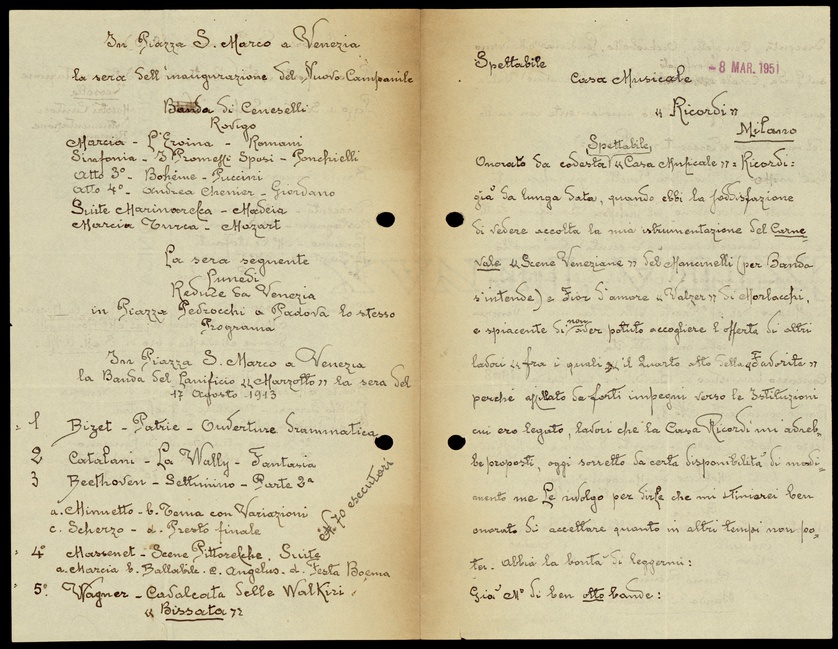 In Piazza S. Marco a Venezia
la sera dell'inaugurazione del Nuovo Campanile
Banda di Ceneselli
Rovigo
Marcia - L'Eroina - Romani
Sinfonia - I Promessi Sposi - Ponchielli
Atto 3º - Bohéme - Puccini
Atto 4º - Andrea Chenier - Giordano
Suite Marinaresca - Madeia
Marcia Turca - Mozart
La sera seguente
Lunedi
Reduce da Venezia
in Piazza Pedrocchi a Padova lo stesso
Programa
In Piazza S. Marco a Venezia
la Banda del Lanificio "Marzotto" la sera del
17 Agosto 1913
1 Bizet - Patrie - Ouverture drammatica
2 Catalani - La Wally - Fantasia
3 Beethoven - Settimino - Parte 2ª
a. Minuetto - b. Tema con Variazioni
c. Scherzo - d. Presto finale
70 esecutori
4º Massenet - Scene Pittoresche. Suite
a. Marcia b. Ballabile. c. Angelus - d. Festa Boema
5º Wagner - Cavalcata delle Walkiri
"Bissata"
Spettabile
- 8 MAR. 1951
Casa Musicale
"Ricordi"
Milano
Spettabile
Onorato da codesta "Casa Musicale" = Ricordi =
già da lunga data, quando ebbi la soddisfazione
di vedere accolta la mia istrumentazione del Carne-
vale "Scene Veneziane" del Mancinelli (per Banda
s'intende) e Fior d'amore "Valzer" di Morlacchi,
e spiacente di non aver potuto accogliere l'offerta di altri
lavori "fra i quali il Quarto atto della Favorita"
perché assillato da forti impegni verso le Istituzioni
cui ero legato, lavori che la Casa Ricordi mi avreb-
be proposti, oggi sorretto da certa disponibilità di modi-
mento me Le rivolgo per dirle che mi stimerei ben
onorato di accettare quanto in altri tempi non po-
tei. Abbia la bontà di leggermi:
Già Mº di ben otto bande: